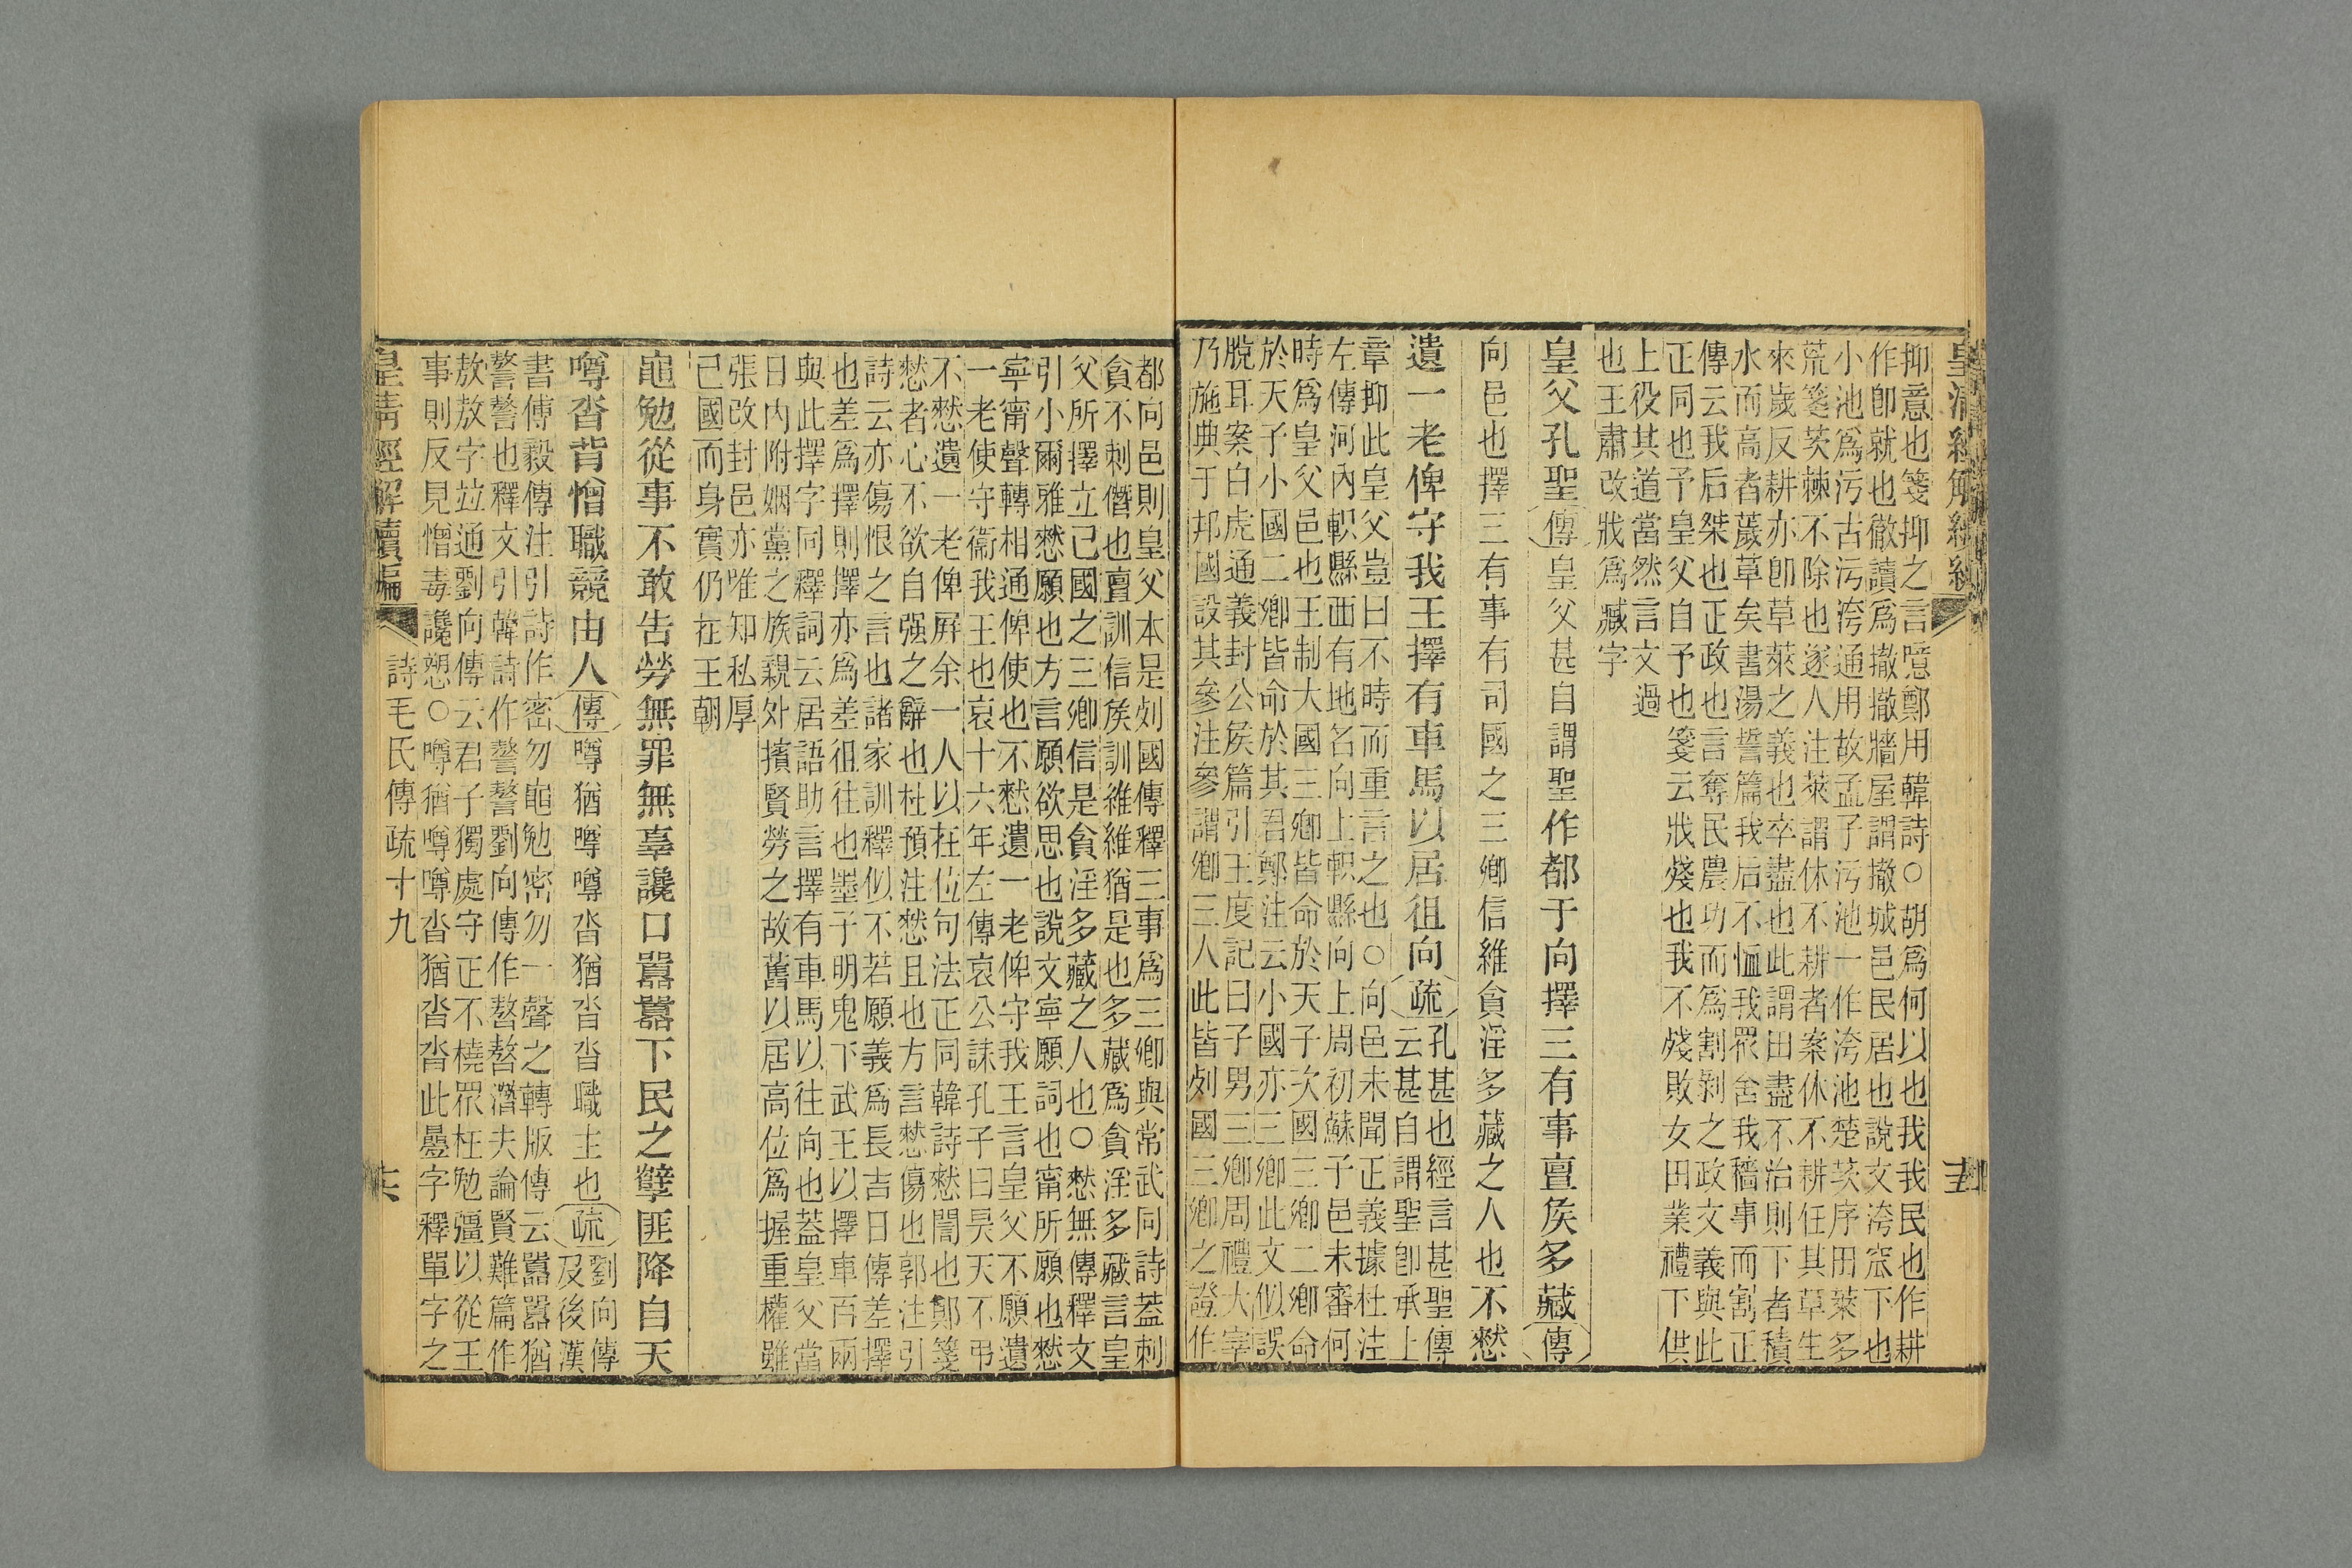 皇清經解續編
抑意也箋抑之言噫鄭用韓詩○胡爲何以也我我民也作耕
作卽就也徹讀爲撤撤牆屋謂撤城邑民居也說文洿窊下也
小池爲污古污洿通用故孟子污池一作洿池楚茨序田萊多
荒箋茨棘不除也遂人注萊謂休不耕者案休不耕任其草生
來歲反耕亦卽草萊之義也卒盡也此謂田盡不治則下者積
水而高者薉草矣書湯誓篇我后不恤我眾舍我穡事而割正
傳云我后桀也正政也言奪民農功而爲割剥之政文義與此
正同也予皇父自予也箋云戕殘也我不殘敗女田業禮下供
上役其道當然言文過
也王肅改戕爲臧字
皇父孔聖傳皇父甚自謂聖作都于向擇三有事亶矦多藏傳
向邑也擇三有事有司國之三卿信維貪淫多藏之人也不憖
遺一老俾守我王擇有車馬以居徂向疏孔甚也經言甚聖傳
云甚自謂聖卽承上
章抑此皇父豈曰不時而重言之也○向邑未聞正義據杜注
左傳河內軹縣西有地名向上軹縣向上周初蘇子邑未審何
時爲皇父邑也王制大國三卿皆命於天子次國三卿二卿命
於天子小國二卿皆命於其君鄭注云小國亦三卿此文似誤
脫耳案白虎通義封公矦篇引王度記曰子男三卿周禮大宰
乃施典于邦國設其參注參謂卿三人此皆列國三卿之證作
都向邑則皇父本是列國傳釋三事爲三卿與常武同詩蓋刺
貪不刺僭也亶訓信矦訓維維猶是也多藏爲貪淫多藏言皇
父所擇立已國之三卿信是貪淫多藏之人也○憖無傳釋文
引小爾雅憖願也方言願欲思也說文寧願詞也甯所願也憖
寧甯聲轉相通俾使也不憖遺一老俾守我王言皇父不願遺
一老使守衞我王也哀十六年左傳哀公誄孔子曰昊天不弔
不憖遺一老俾屏余一人以在位句法正同韓詩憖誾也鄭箋
憖者心不欲自强之辭也杜預注憖且也方言憖傷也郭注引
詩云亦傷恨之言也諸家訓釋似不若願義爲長吉日傳差擇
也差爲擇則擇亦爲差徂往也墨子明鬼下武王以擇車百兩
與此擇字同釋詞云居語助言擇有車馬以往向也蓋皇父當
日內附姻黨之族親外擯賢勞之故舊以居高位爲握重權雖
張改封邑亦唯知私厚
己國而身實仍在王朝
黽勉從事不敢告勞無罪無辜讒口囂囂下民之孽匪降自天
噂沓背憎職競由人傳噂猶噂噂沓猶沓沓職主也疏劉向傳
及後漢
書傅毅傳注引詩作密勿黽勉密勿一聲之轉版傳云囂囂猶
警警也釋文引韓詩作謷謷劉向傳作嗸嗸潛夫論賢難篇作
敖敖字竝通劉向傳云君子獨處守正不橈眾枉勉彊以從王
事則反見憎毒讒愬○噂猶噂噂沓猶沓沓此曡字釋單字之
皇清經解續編
詩毛氏傳疏十九